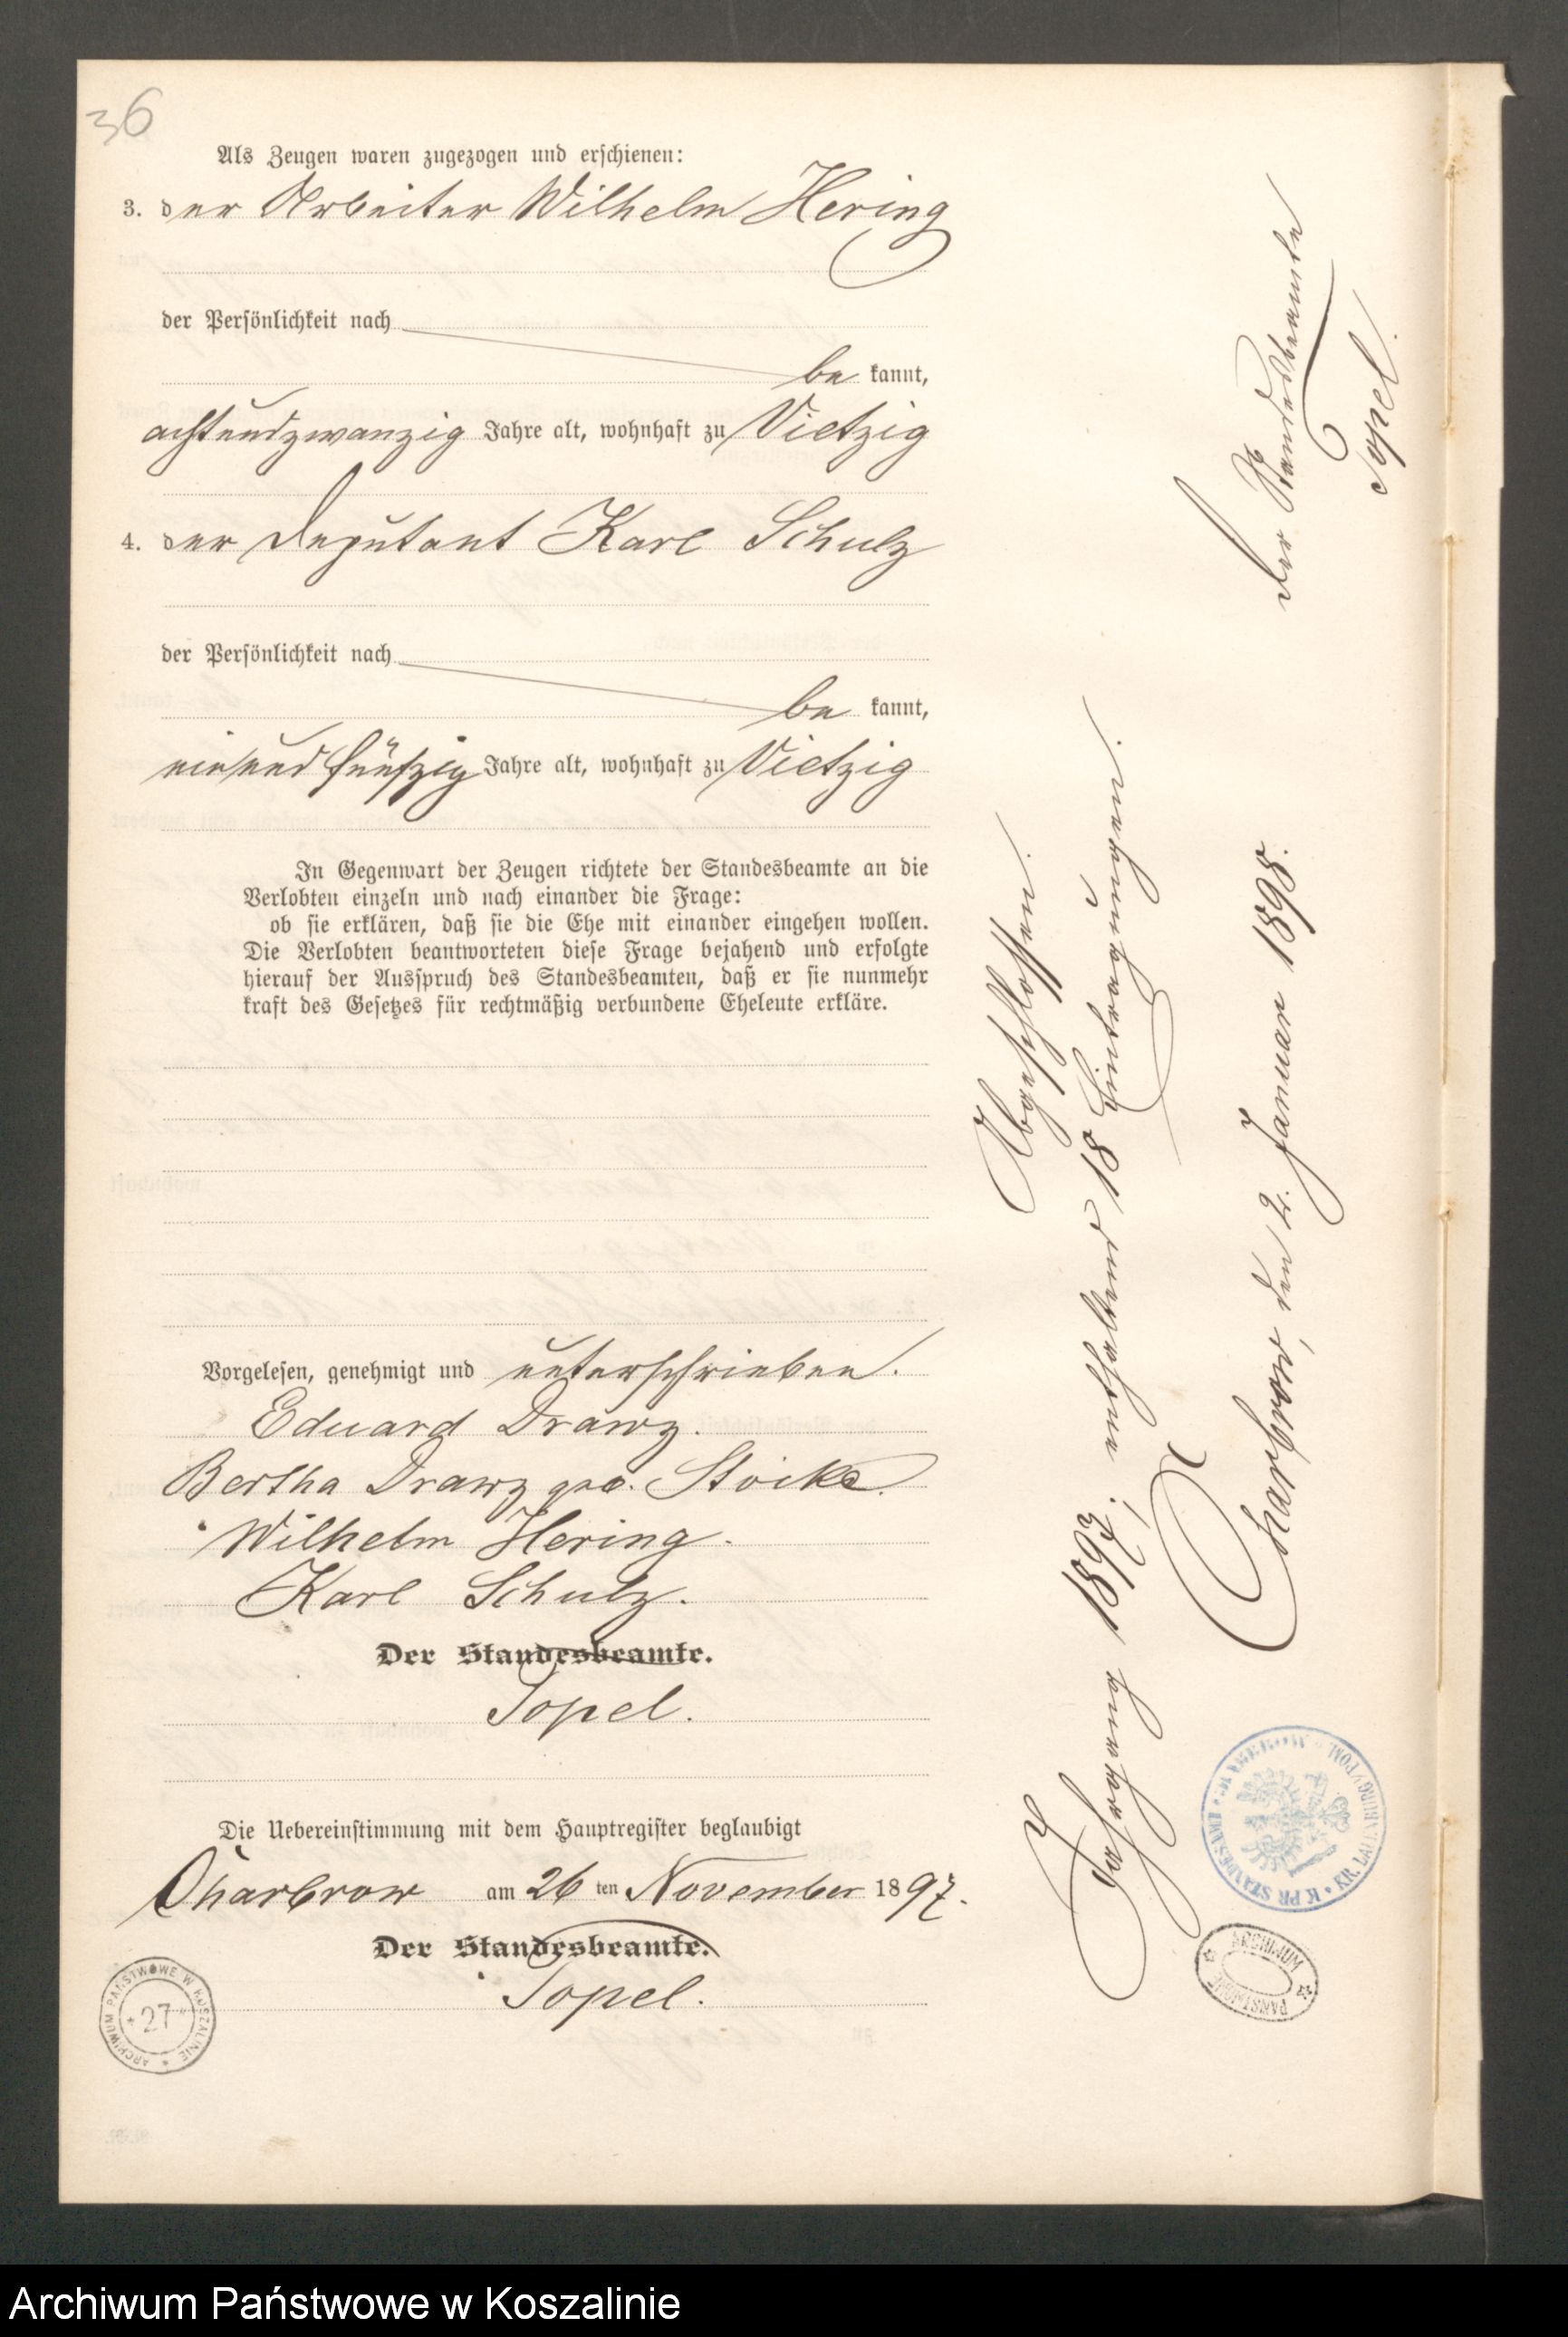 36
Als Zeugen waren zugezogen und erschienen:
3. der Arbeiter Wilhelm Hering
der Persönlichkeit nach
be kannt,
achtundzwanzig Jahre alt, wohnhaft zu Vietzig
4. der Deputant Karl Schulz
der Persönlichkeit nach
be kannt,
einundfünfzig Jahre alt, wohnhaft zu Vietzig
In Gegenwart der Zeugen richtete der Standesbeamte an die
Verlobten einzeln und nach einander die Frage:
ob sie erklären, daß sie die Ehe mit einander eingehen wollen.
Die Verlobten beantworteten diese Frage bejahend und erfolgte
hierauf der Ausspruch des Standesbeamten, daß er sie nunmehr
kraft des Gesetzes für rechtmäßig verbundene Eheleute erkläre.
Vorgelesen, genehmigt und unterschrieben.
Eduard Drawz.
Bertha Drawz geb. Stöcke.
Wilhelm Hering.
Karl Schulz.
Der Standesbeamte.
Sopel.
Die Uebereinstimmung mit dem Hauptregister beglaubigt
Charbrow am 26 ten November 1897.
Der Standesbeamte.
Sopel.
Abgeschlossen.
Jahrgang 1897; enthaltend 18 Eintragungen.
Charbrow, den 2. Januar 1898.
Der Standesbeamte
Sopel.
K PR STANDESAMT CHARBROW KR. LAUENBURG/POM.
ARCHIWUM PAŃSTWOWE
ARCHIWUM PAŃSTWOWE W KOSZALINIE
27
Archiwum Państwowe w Koszalinie